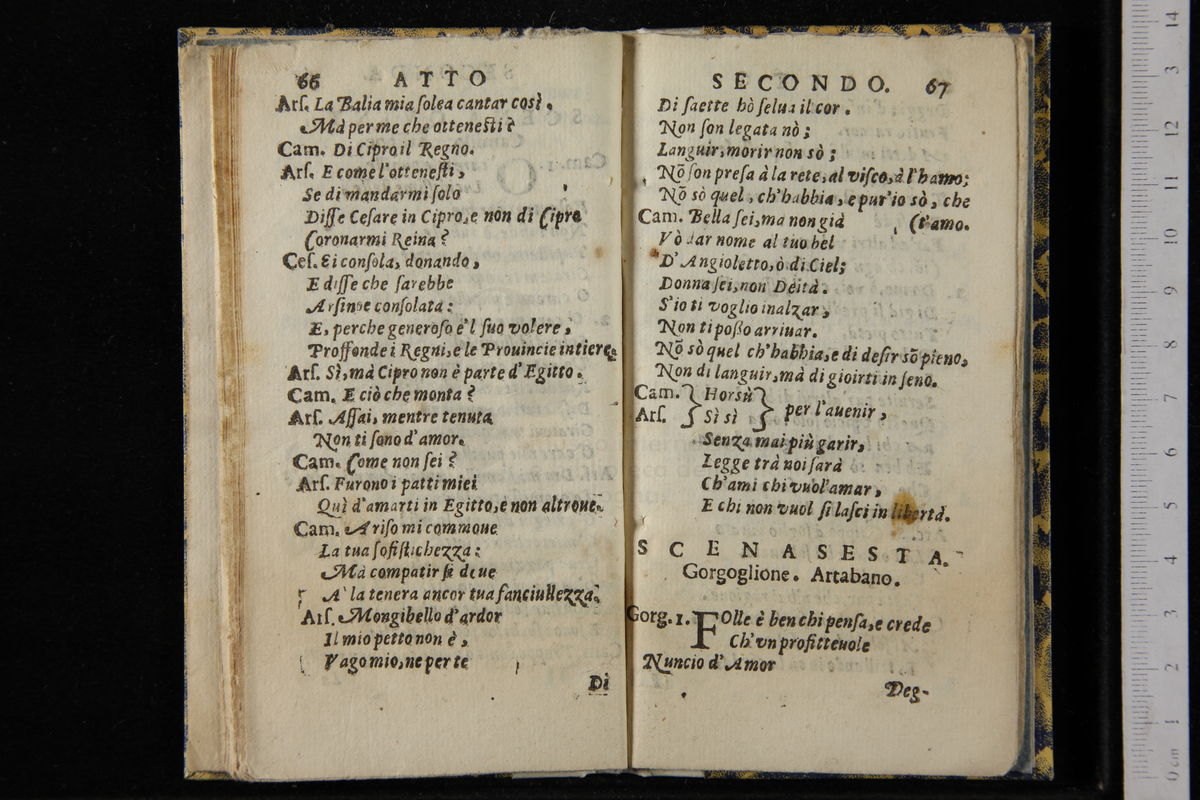 66 ATTO
Arſ. La Balia mia ſolea cantar così.
Mà per me che otteneſti?
Cam. Di Cipro il Regno.
Arſ. E come l'otteneſti,
Se di mandarmi ſolo
Diſſe Ceſare in Cipro, e non di Cipro
Coronarmi Reina?
Ceſ. Ei conſola, donando,
E diſſe che ſarebbe
Arſinoe conſolata:
E, perche generoſo è'l ſuo volere,
Proffonde i Regni, e le Prouincie intiere.
Arſ. Sì, mà Cipro non è parte d'Egitto.
Cam. E ciò che monta?
Arſ. Aſſai, mentre tenuta
Non ti ſono d'amor.
Cam. Come non ſei?
Arſ. Furono i patti miei
Quì d'amarti in Egitto, e non altroue.
Cam. A riſo mi commoue
La tua ſofiſtichezza:
Mà compatir ſi deue
A' la tenera ancor tua fanciullezza.
Arſ. Mongibello d'ardor
Il mio petto non è,
Vago mio, ne per te
Di
SECONDO. 67
Di ſaette hò ſelua il cor.
Non ſon legata nò;
Languir, morir non sò;
Nõ ſon preſa à la rete, al viſco, à l'hamo;
Nõ sò quel, ch'habbia, e pur'io sò, che
Cam. Bella ſei, ma non già (t'amo.
Vò dar nome al tuo bel
D'Angioletto, ò di Ciel;
Donna ſei, non Deità.
S'io ti voglio inalzar,
Non ti poßo arriuar.
Nõ sò quel ch'habbia, e di deſir sõ pieno,
Non di languir, mà di gioirti in ſeno.
Cam. } Horsù }
Arſ. } Sì sì } per l'auenir,
Senza mai più garir,
Legge trà noi ſarà
Ch'ami chi vuol'amar,
E chi non vuol ſi laſci in libertà.
SCENA SESTA.
Gorgoglione. Artabano.
Gorg. 1. FOlle è ben chi penſa, e crede
Ch'vn profitteuole
Nuncio d'Amor
Deg-
14
3
12
11
10
9
8
7
6
5
4
3
2
1
0 cm